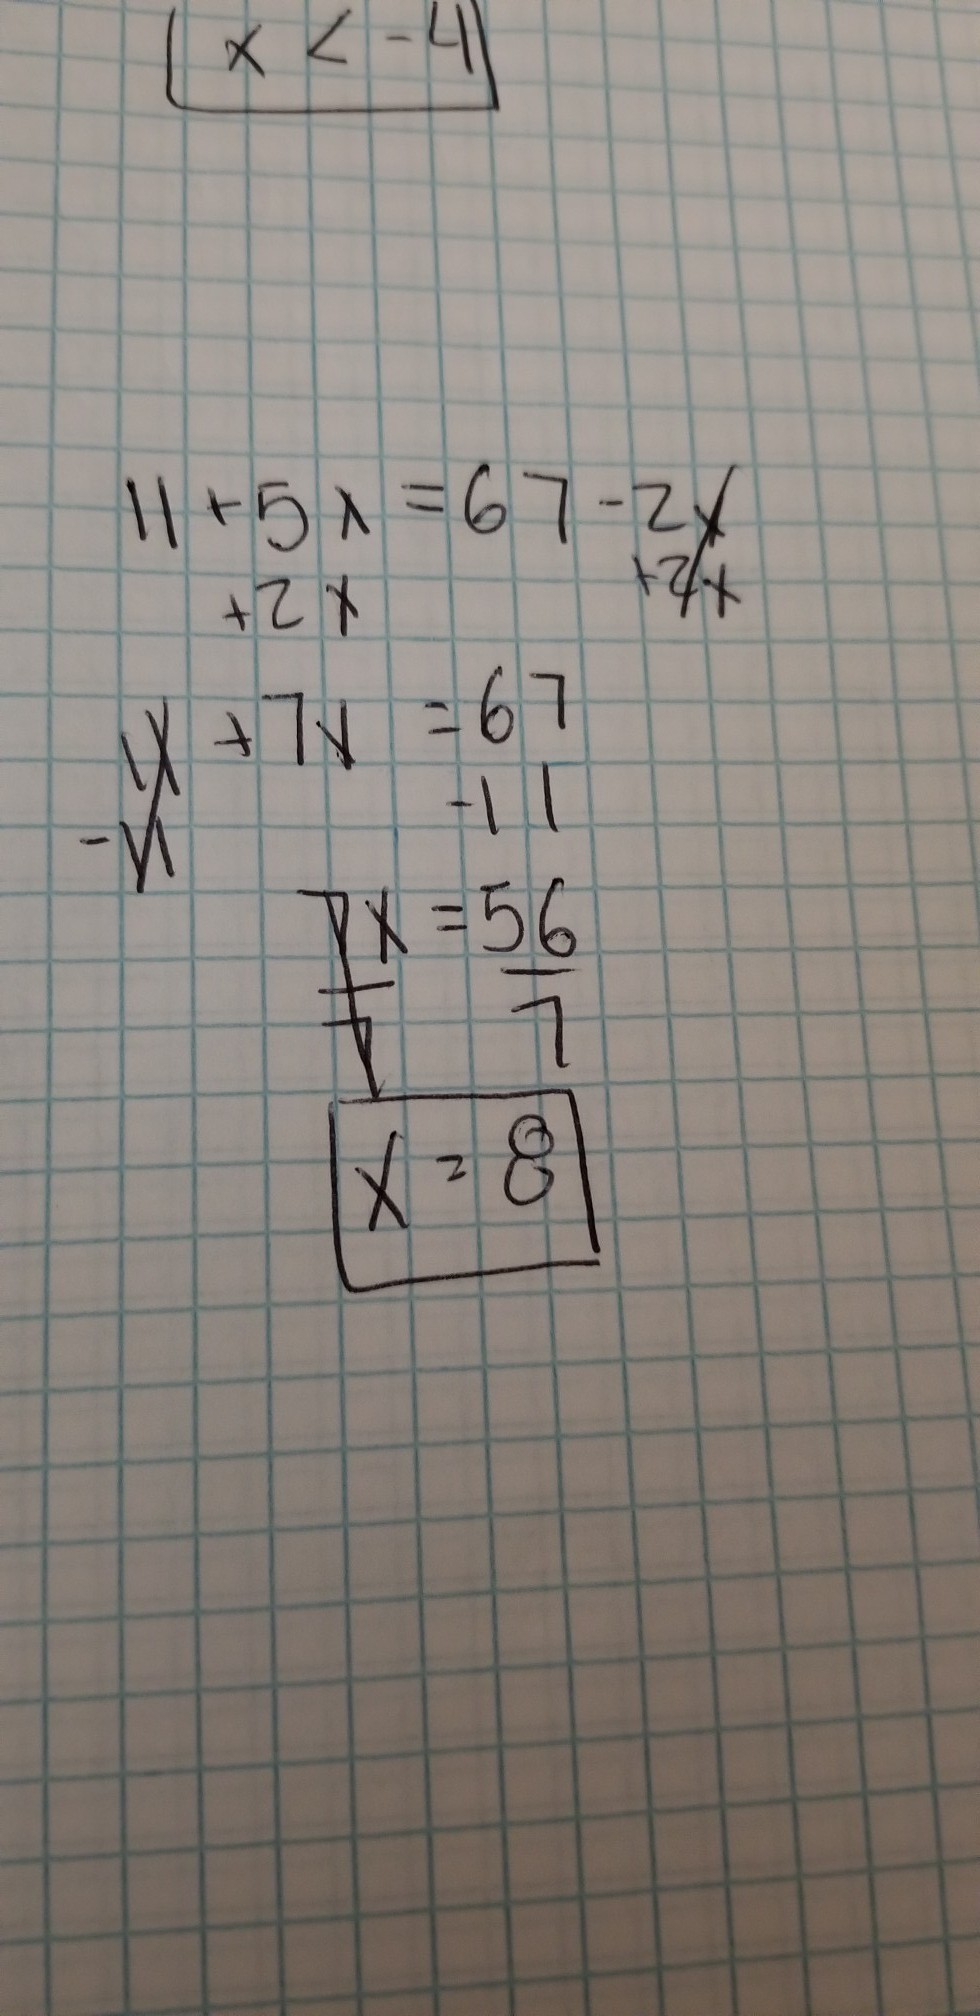 x < -4
11 + 5x = 67 - 2x
+2x +2x
11 + 7x = 67
-11 -11
7x = 56
7 7
x = 8